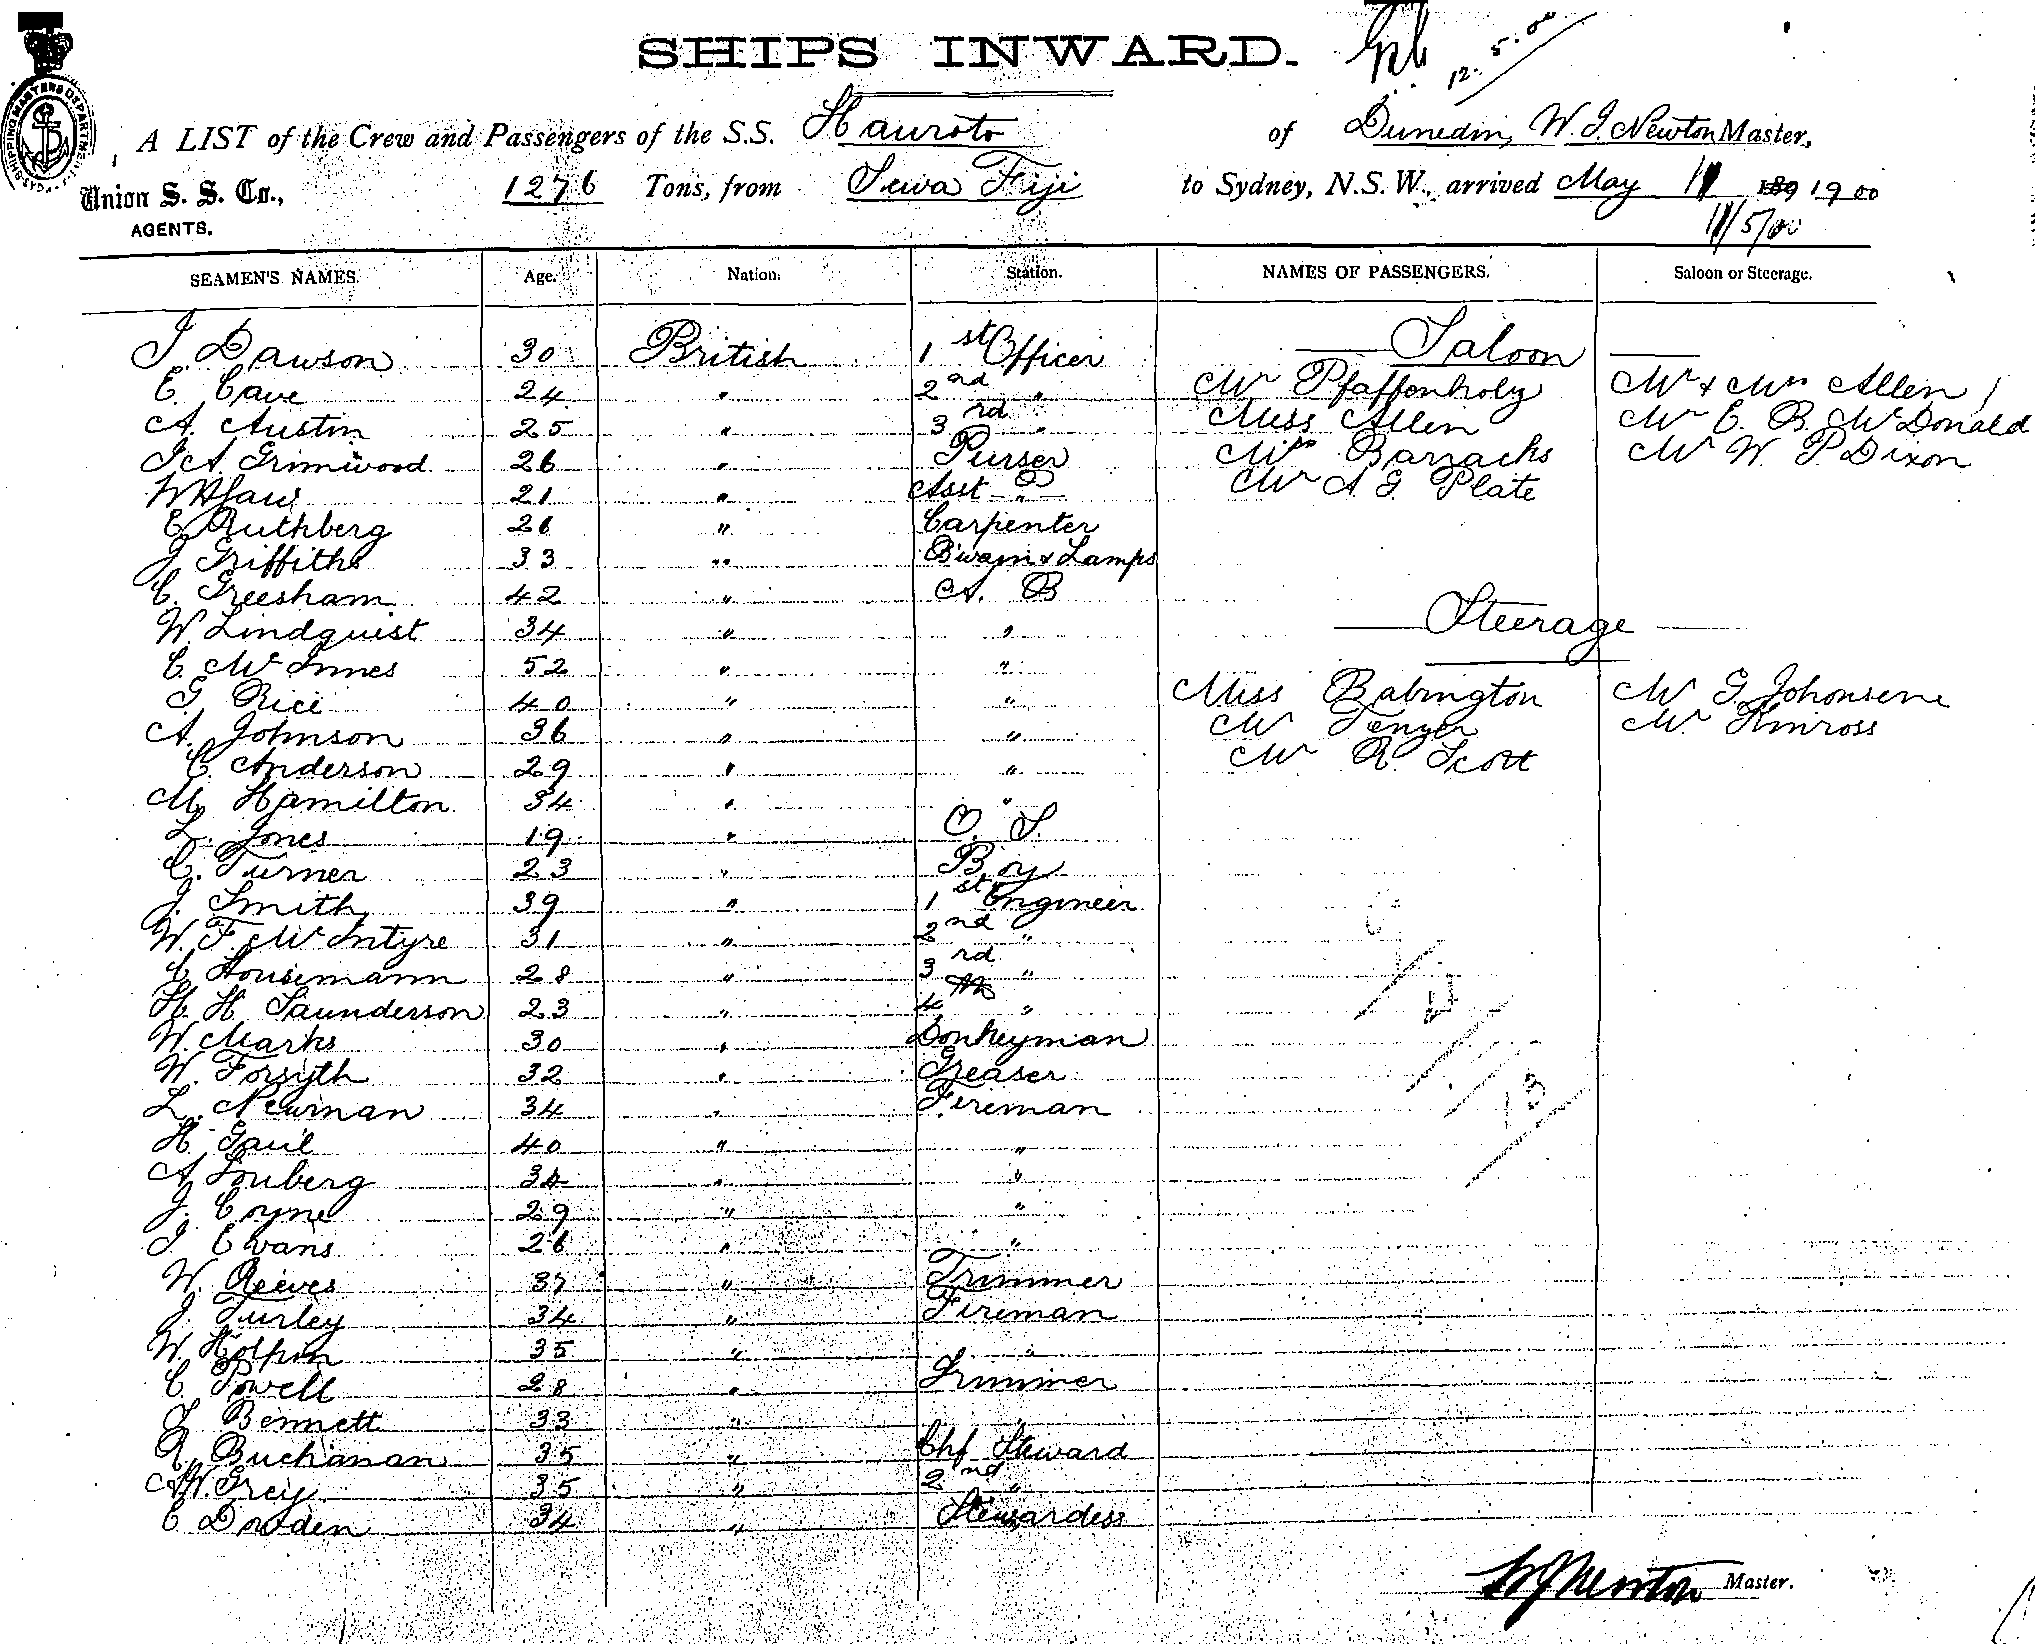 SHIPS INWARD.
12.5.0
A LIST of the Crew and Passengers of the S.S. Hauroto of Dunedin, W. J. Newton Master,
Union S. S. Co., 1276 Tons, from Suva Fiji to Sydney, N.S.W., arrived May 11 189 1900
AGENTS. 11/5/00
SEAMEN'S NAMES. Age. Nation. Station. NAMES OF PASSENGERS. Saloon or Steerage.
J. Dawson 30 British 1st Officer Saloon
E. Cave 24 " 2nd " Mr Pfaffenholz Mr & Mrs Allen
A. Austin 25 " 3rd " Miss Allen Mr E. B. McDonald
J A Grimwood 26 " Purser Mrs Barracks Mr W. P. Dixon
W H Law 21 " Asst " Mr A G Plate
E. Ruthberg 26 " Carpenter
J Griffiths 33 " B'wain & Lamps
C. Greesham 42 " A. B
W. Lindquist 34 " " Steerage
C. McInnes 52 " "
G. Rice 40 " " Miss Babington Mr G. Johonsene
A. Johnson 36 " " Mr Mr Kinross
C. Anderson 29 " " Mr R. Scott
M. Hamilton 34 " "
L. Jones 19 " O. S.
C. Turner 23 " Boy
J. Smith 39 " 1st Engineer
W. F. McIntyre 31 " 2nd "
C. Housemann 28 " 3rd "
H. H Saunderson 23 " 4th "
W. Marks 30 " Donkeyman
W. Forsyth 32 " Greaser
L. Newman 34 " Fireman
H. Gail 40 " "
A. Louberg 34 " "
J. Coyne 29 " "
J. Evans 26 " "
W. Reeves 37 " Trimmer
J. Turley 34 " Fireman
W. 35 " "
C. Powell 28 " Trimmer
J. Bennett 33 " "
R. Buchanan 35 " Chf Steward
A W. Grey 35 " 2nd "
E Dowden 34 " Stewardess
W J Newton Master.